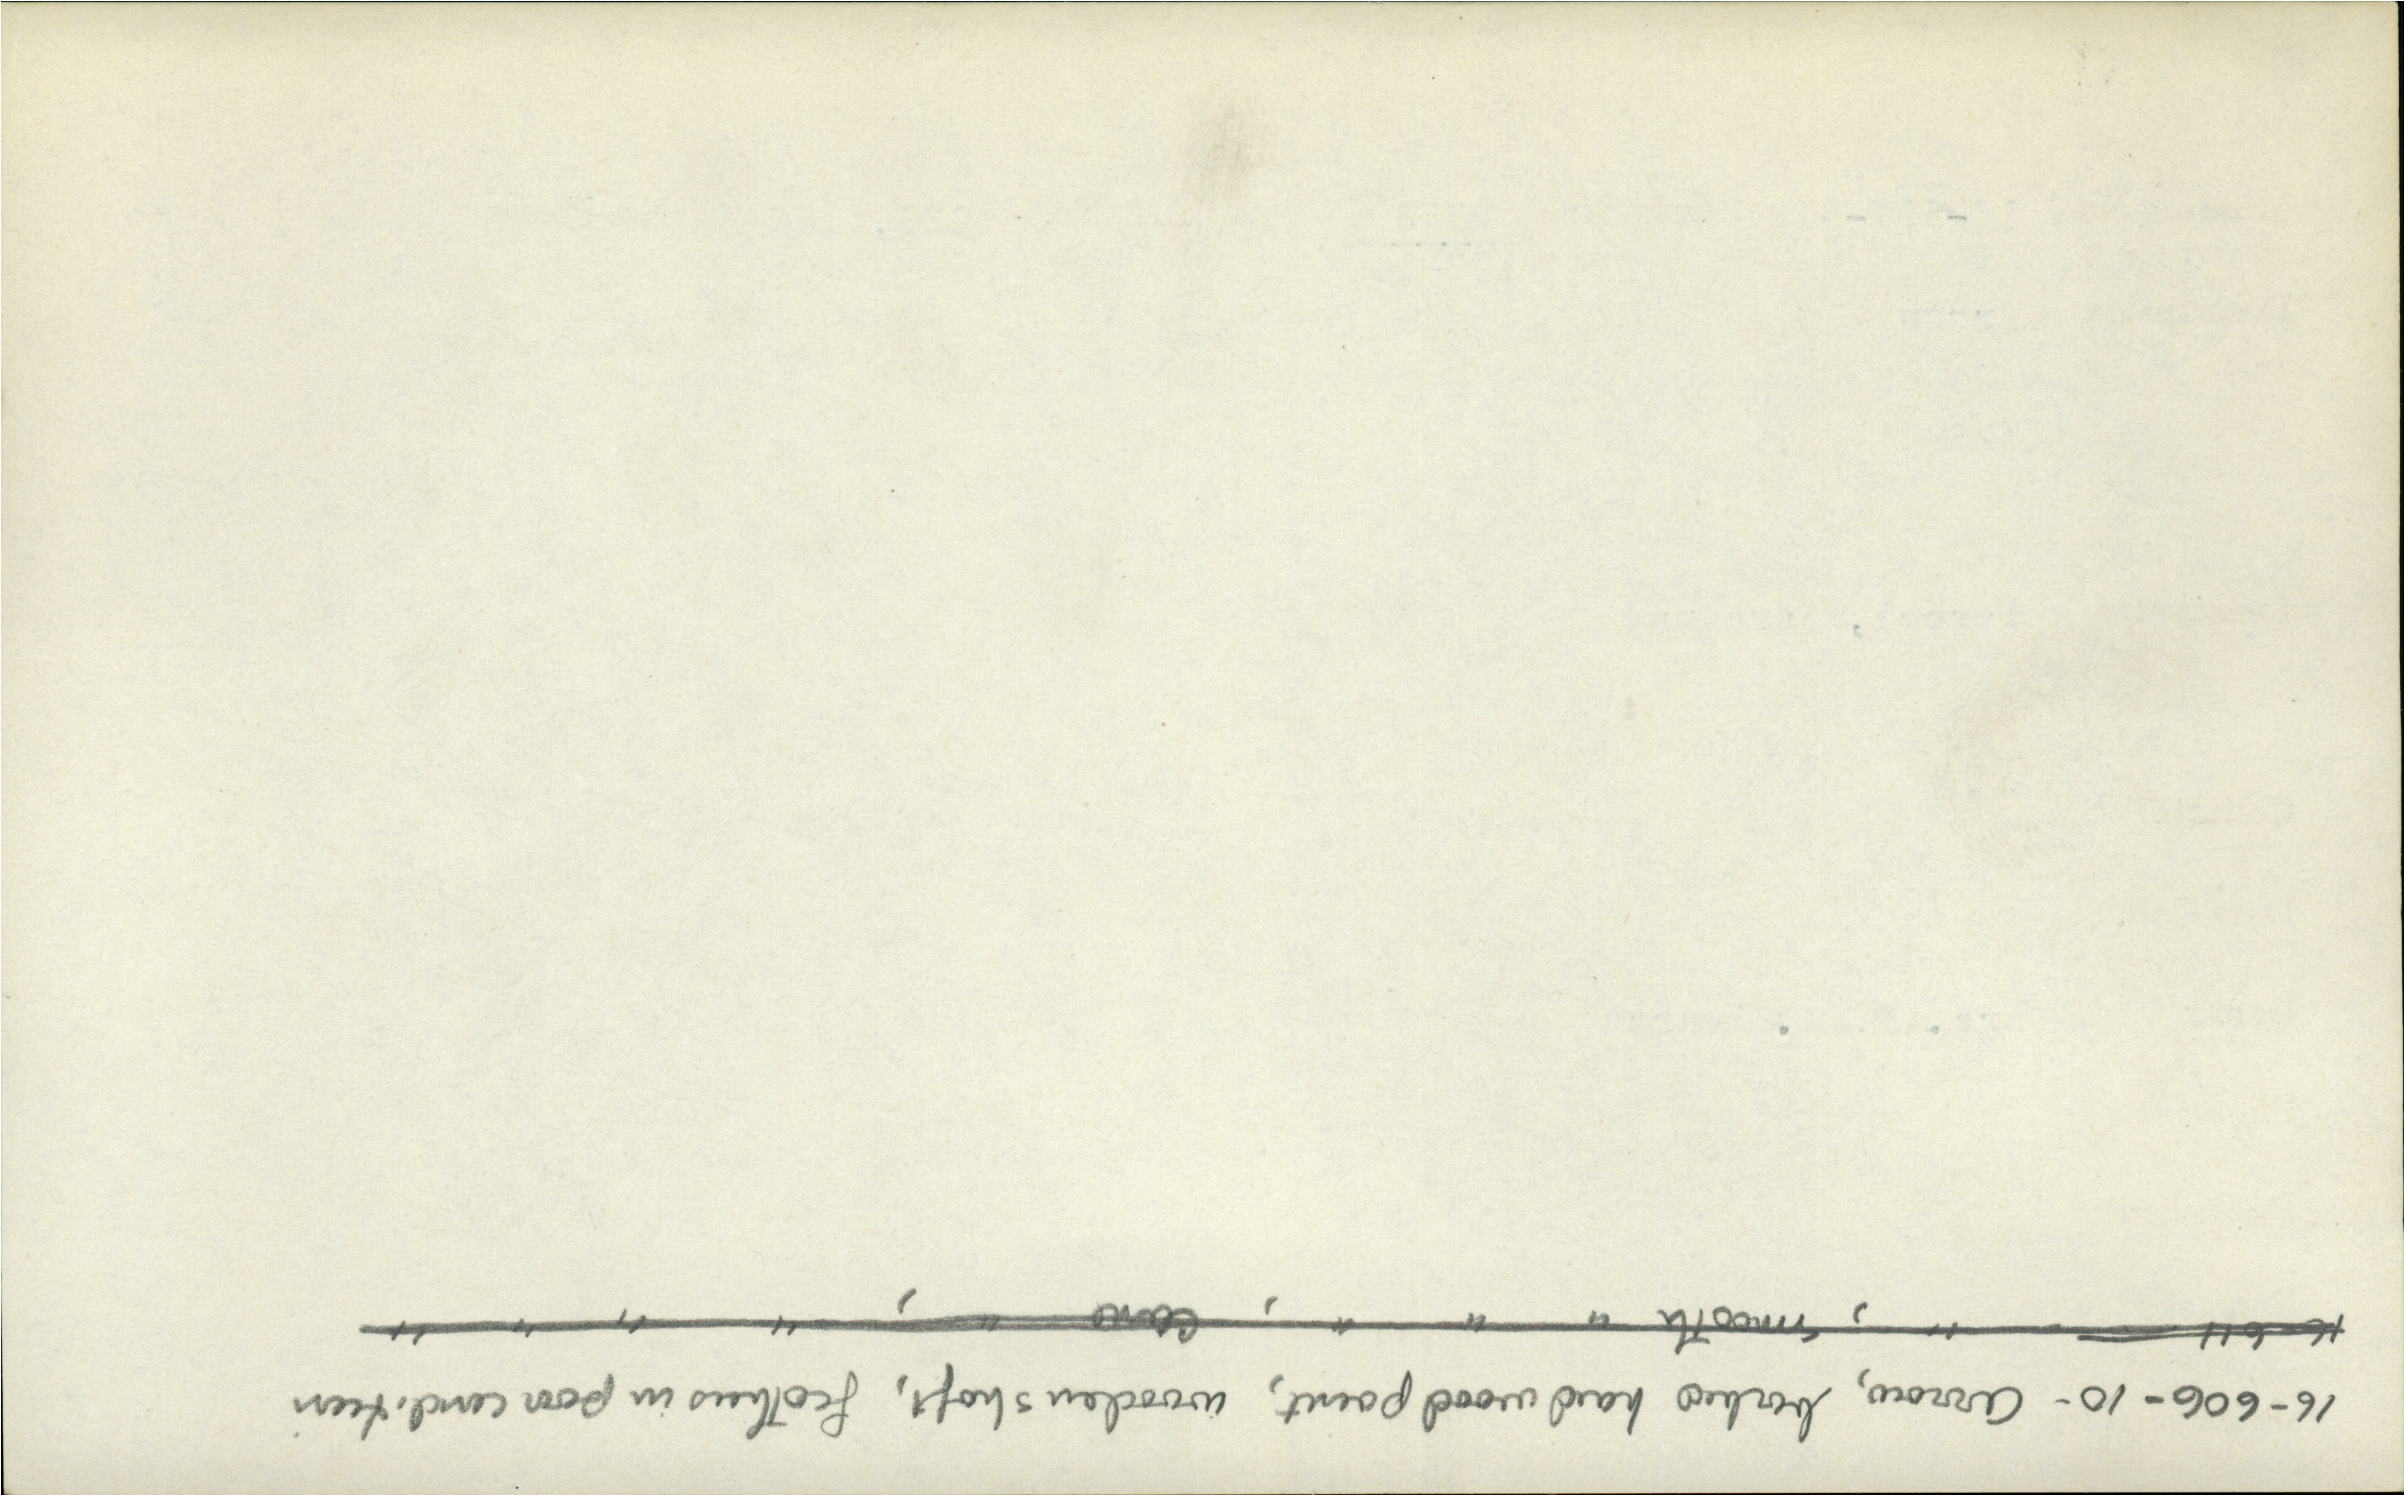 16-606-10 - Arrow, barbed hard wood point, wooden shaft, feathers in poor condition
16 611 - ", smooth " " ", cane ", " " " "